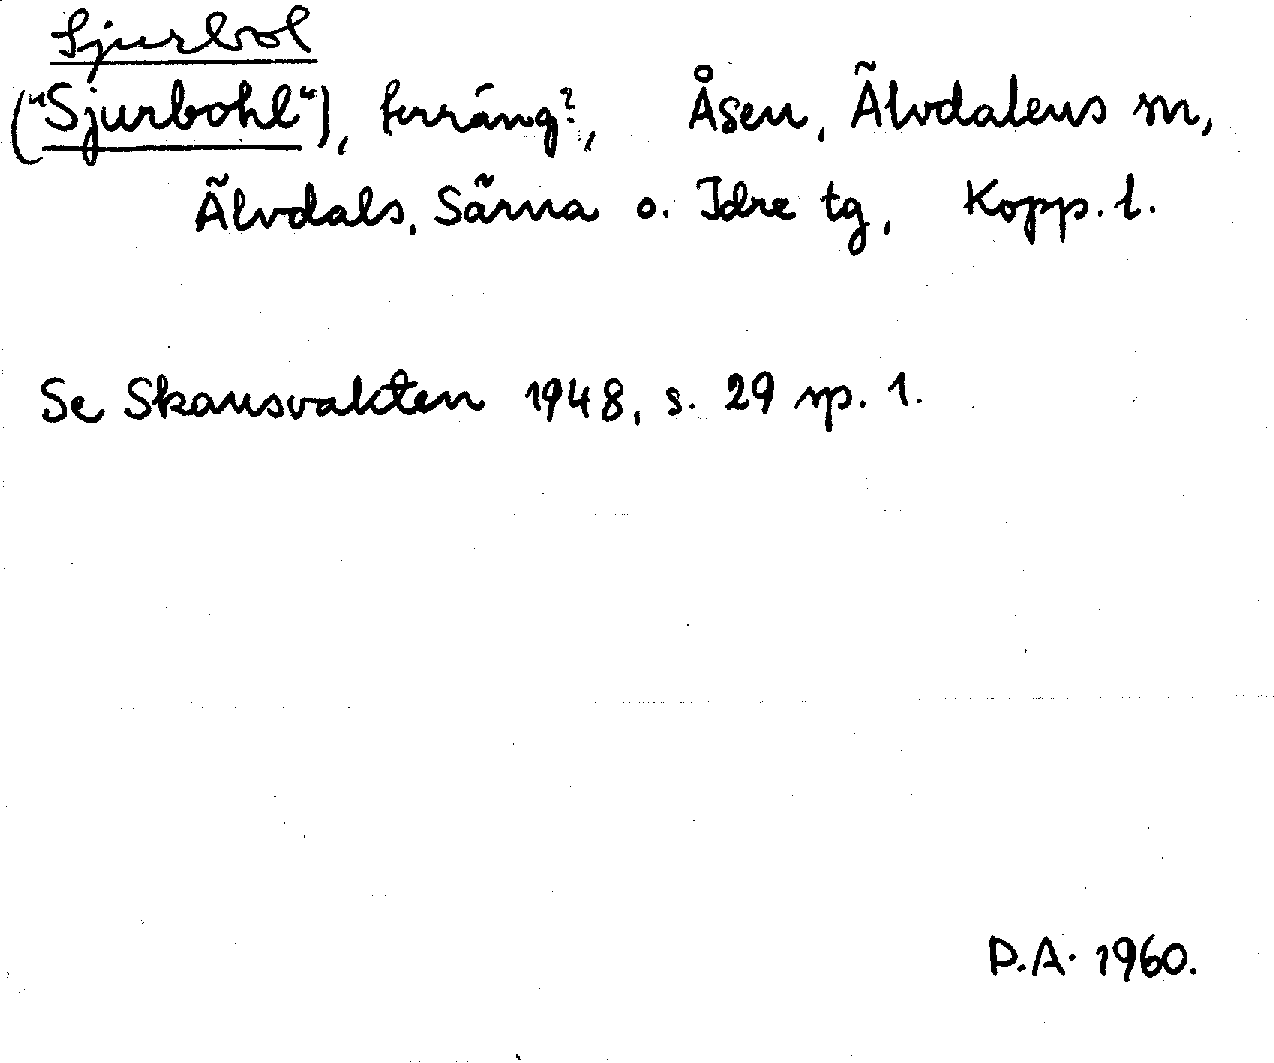 Sjurbol
("Sjurbohl"), terräng?, Åsen, Älvdalens sn,
Älvdals, Särna o. Idre tg, Kopp. l.
Se Skansvakten 1948, s. 29 sp. 1.
P.A. 1960.